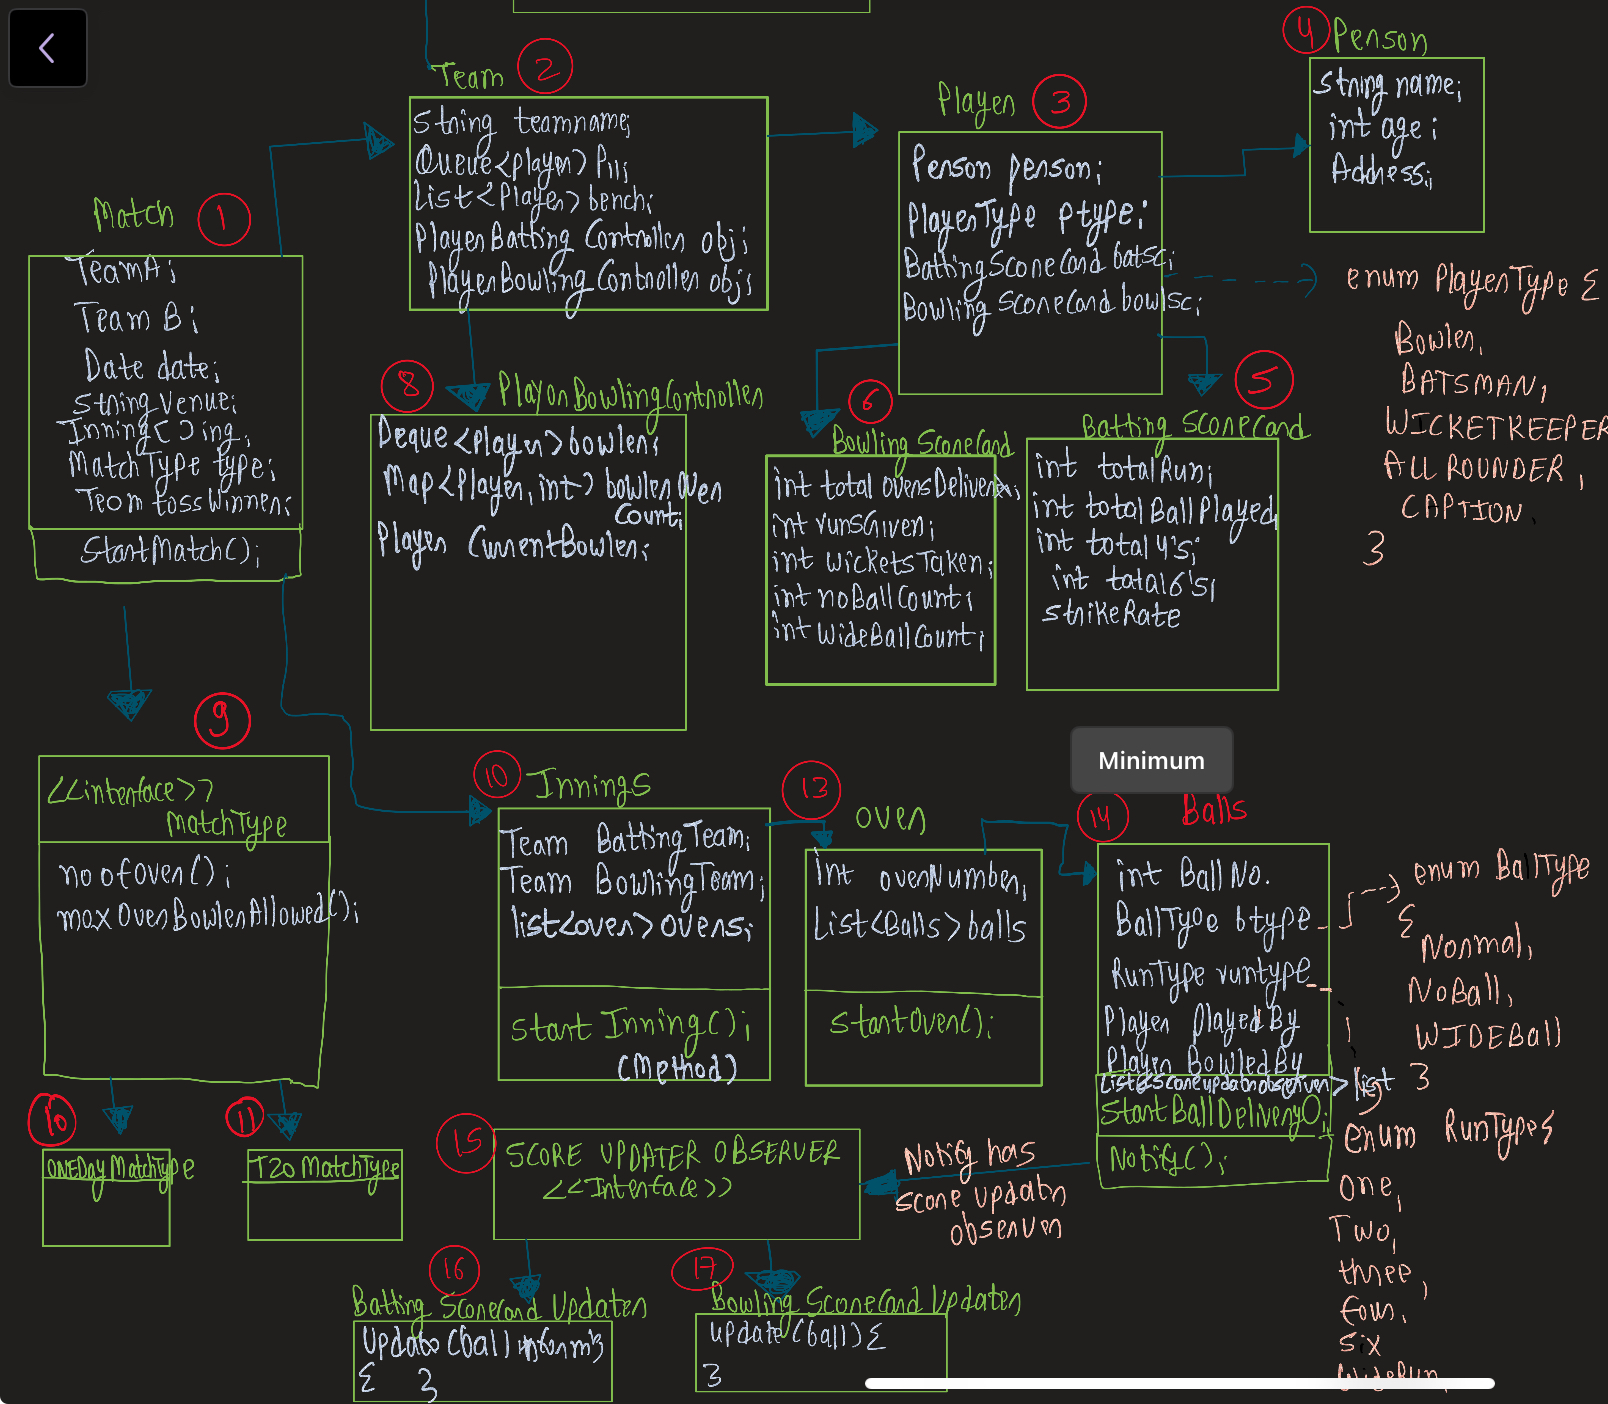 Team 2
String teamname;
Queue<player> P11;
List<Player> bench;
PlayerBatting Controller obj;
PlayerBowling Controller obj;
Player 3
Person person;
PlayerType ptype;
BattingScoreCard batsc;
Bowling ScoreCard bowlsc;
4 Person
String name;
int age;
Address;
enum PlayerType {
Bowler,
BATSMAN,
WICKETKEEPER
ALL ROUNDER,
CAPTION
}
Match 1
TeamA;
Team B;
Date date;
String venue;
Inning[] ing;
MatchType type;
Team tossWinner;
StartMatch();
8 PlayerBowlingController
Deque <Player> bowler;
Map<Player, int> bowler Over
Count;
Player CurrentBowler;
6
Bowling ScoreCard
int total oversDelivered;
int runsGiven;
int wicketsTaken;
int noBallCount;
int WideBallCount;
5
Batting SCORECard
int totalRun;
int totalBallPlayed
int total4's;
int total6's;
strikeRate
9
<<interface>>
MatchType
no ofover();
maxOverBowlerAllowed();
10
ONEDay MatchType
11
T20 MatchType
10 Innings
Team BattingTeam;
Team BowlingTeam;
list<over> overs;
Start Inning();
(Method)
13 over
Int overNumber,
List<Balls> balls
startover();
Minimum
14 Balls
int Ball No.
BallType btype
RunType runtype
Player PlayedBy
Player BowledBy
List<scoreupdaterobserver> list
StartBallDelivery();
Notify();
enum BallType
{
Normal,
NoBall,
WIDEBall
}
enum RunType{
One,
Two,
three,
four,
six
WideRun,
15 SCORE UPDATER OBSERVER
<<Interface>>
Notify has
score updatr
observer
16
Batting Scorecard Updater
Update(ball
{ }
17
Bowling ScoreCard Updater
update(ball) {
}